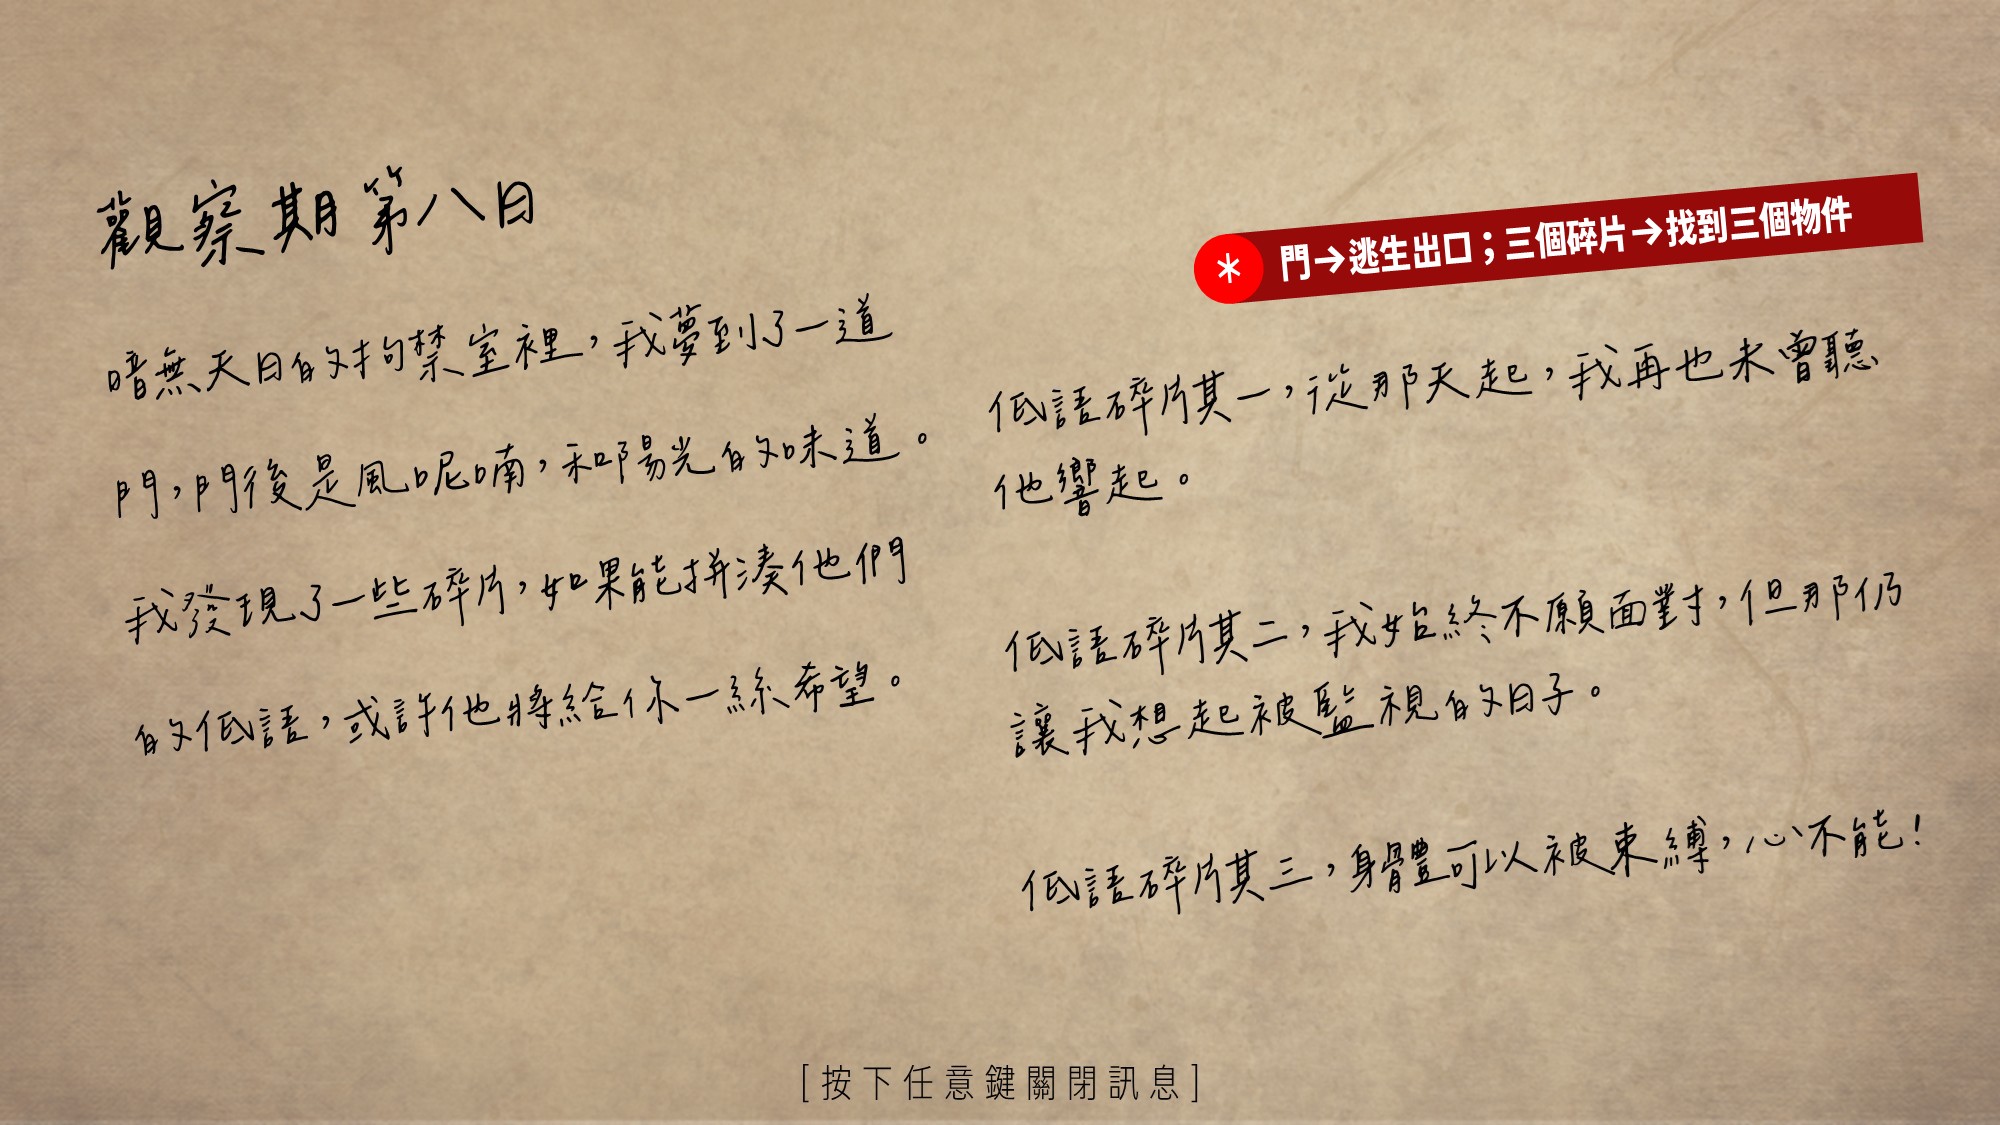 觀察期第八日
暗無天日的拘禁室裡，我夢到了一道
門，門後是風呢喃，和陽光的味道。
我發現了一些碎片，如果能拼湊他們
的低語，或許他將給你一絲希望。
* 門→逃生出口；三個碎片→找到三個物件
低語碎片其一，從那天起，我再也未曾聽
他響起。
低語碎片其二，我始終不願面對，但那仍
讓我想起被監視的日子。
低語碎片其三，身體可以被束縛，心不能！
[按下任意鍵關閉訊息]